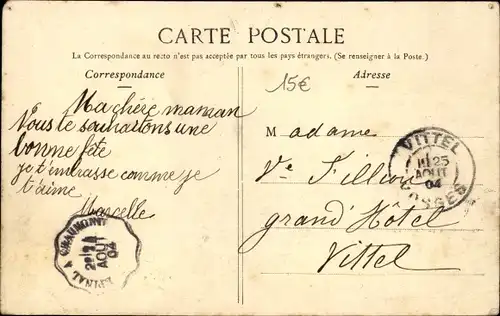 CARTE POSTALE
La Correspondance au recto n'est pas acceptée par tous les pays étrangers. (Se renseigner à la Poste.)
Correspondance
Ma chère maman
Nous te souhaitons une
bonne fête
je t'embrasse comme je
t'aime
Marcelle
EPINAL A CHAUMONT
AOUT
04
15€
Adresse
Madame
Ve Fillion
grand'Hôtel
Vittel
VITTEL
25
AOUT
04
VOSGES